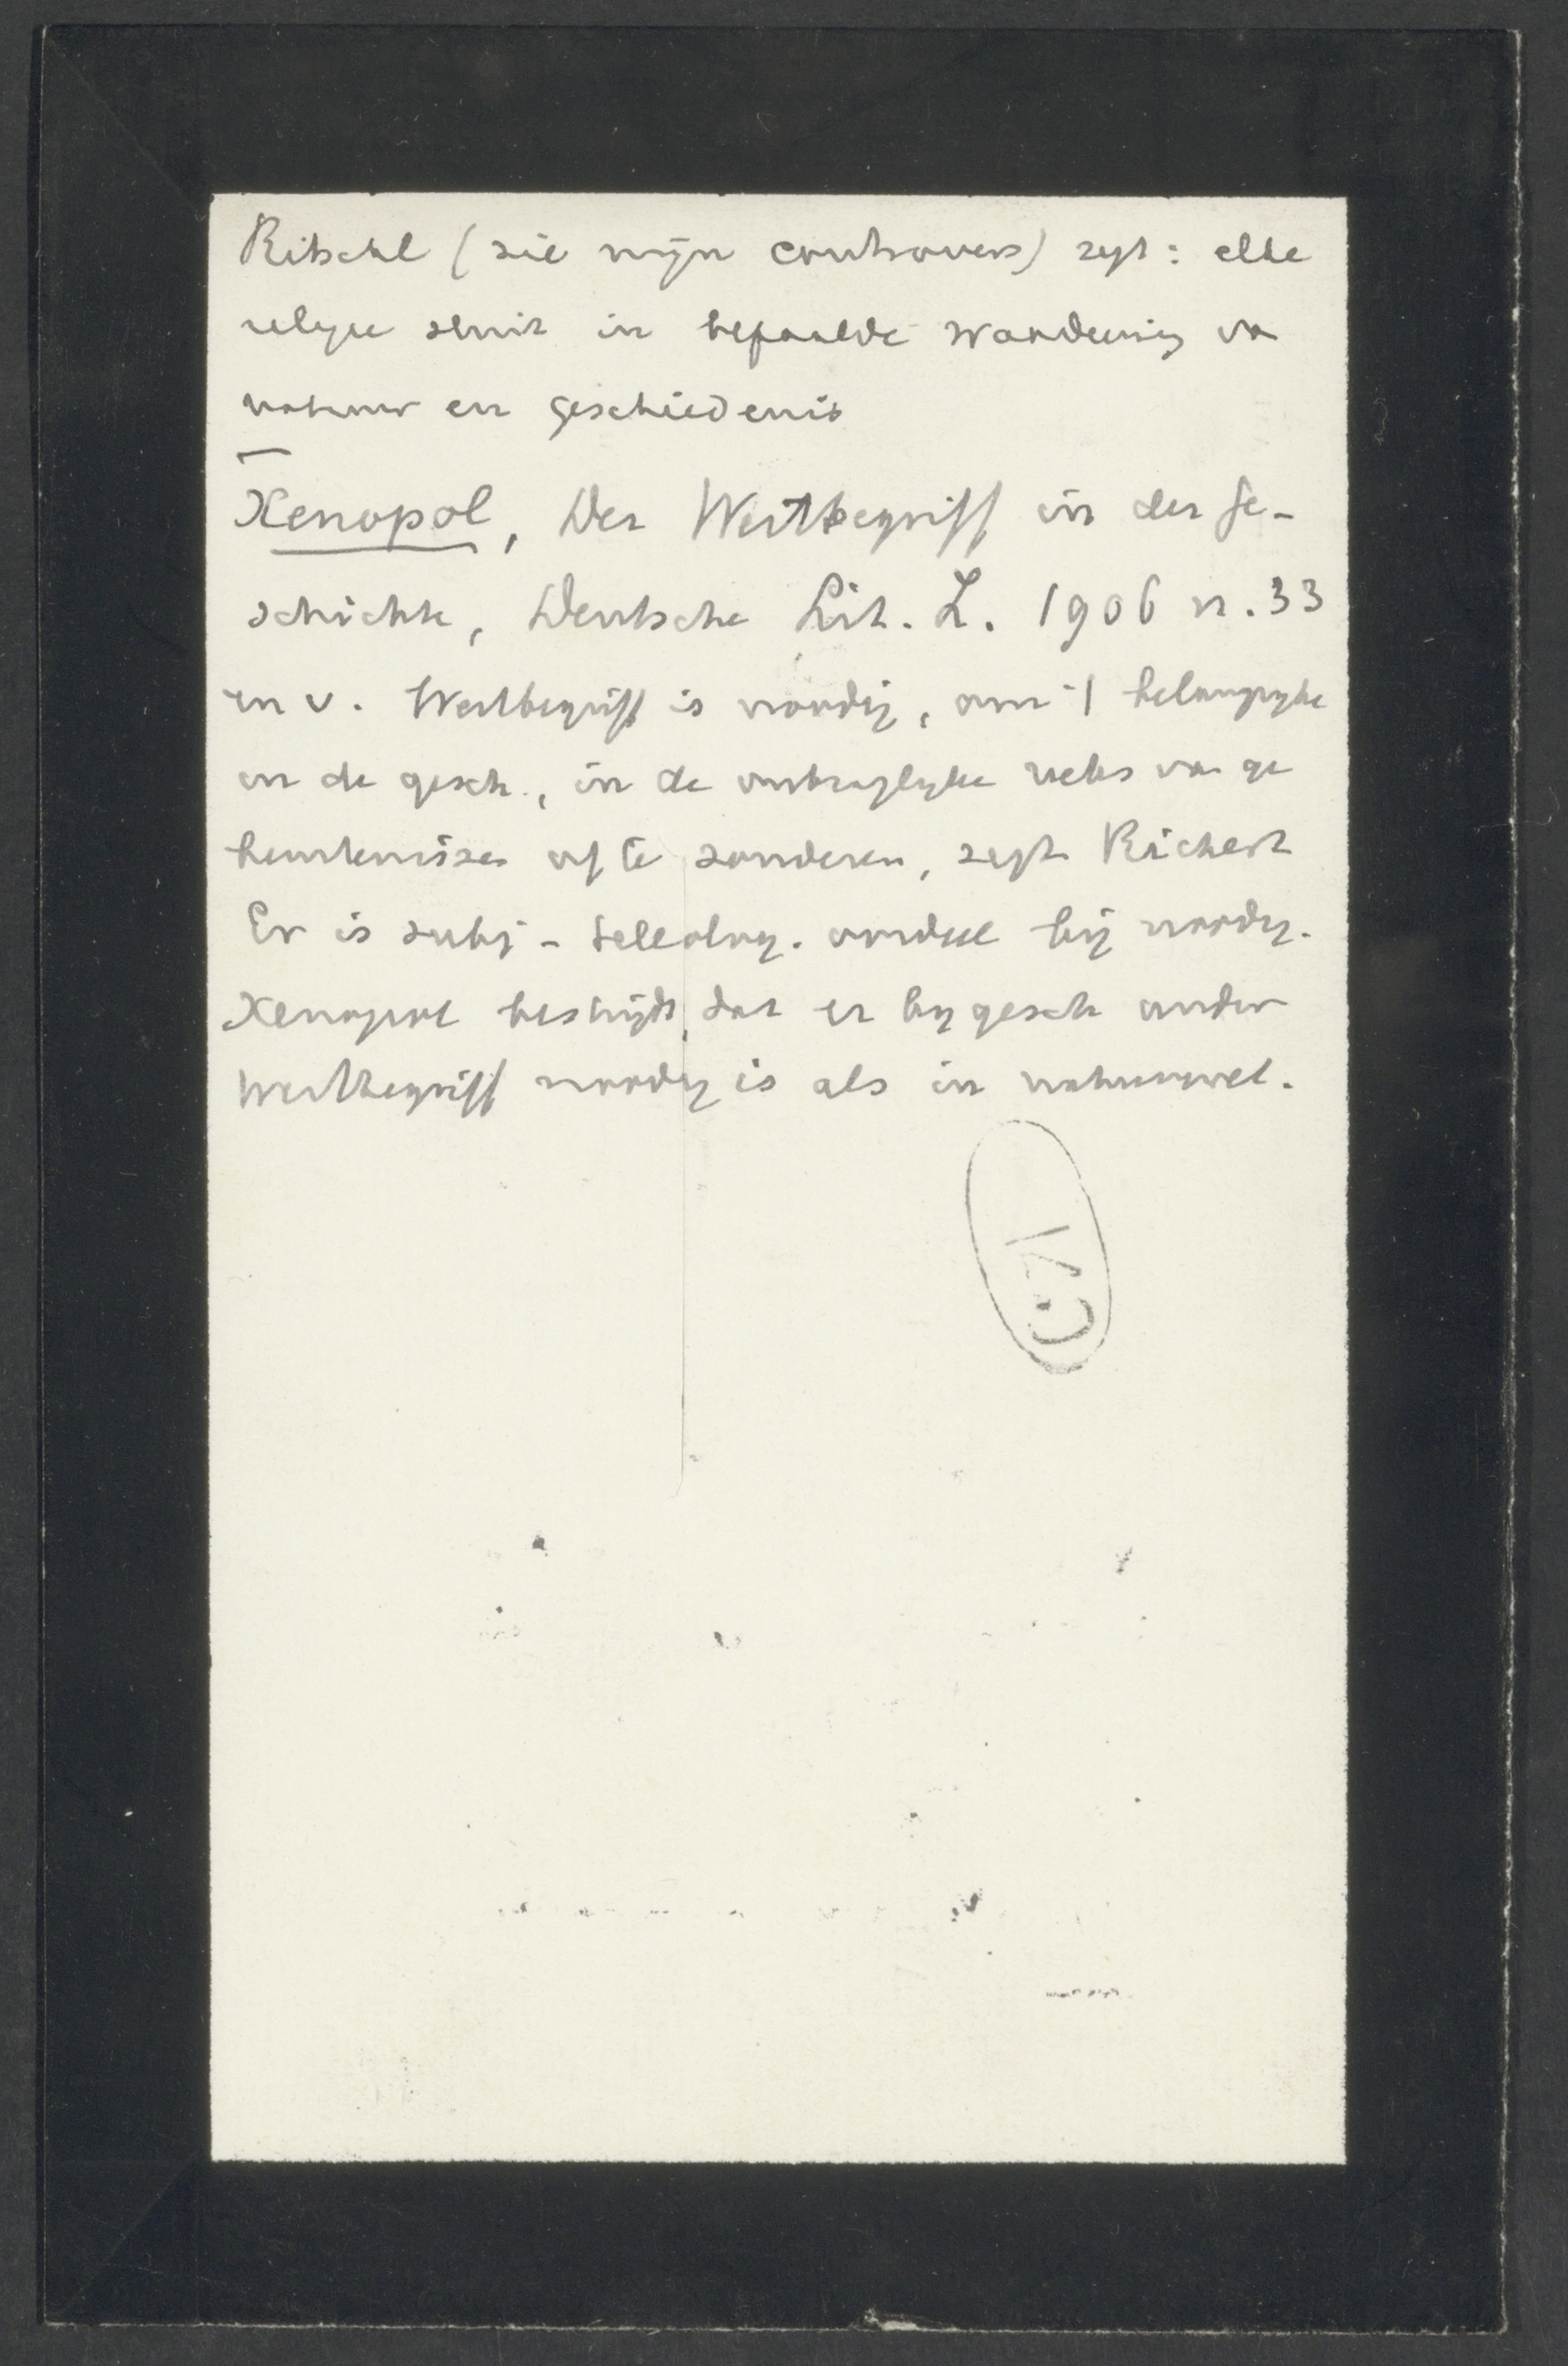 Ritschl (zie mijn controvers) zegt: elke
religie sluit in bepaalde waardeering va
natuur en geschiedenis
Xenopol, Der Wertbegriff in der Ge-
schichte, Deutsche Lit. Z. 1906 n. 33
en v. Wertbegriff is noodig, om 't belangrijke
in de gesch., in de reeks va ge
beurtenissen af te zonderen, zegt Rickert
Er is subj-teleolog. oordeel bij noodig.
Xenopol bestrijdt, dat er bij gesch ander
Wertbegriff noodig is als in natuurwet.